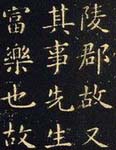 陵郡故又
其事先生
富樂也故